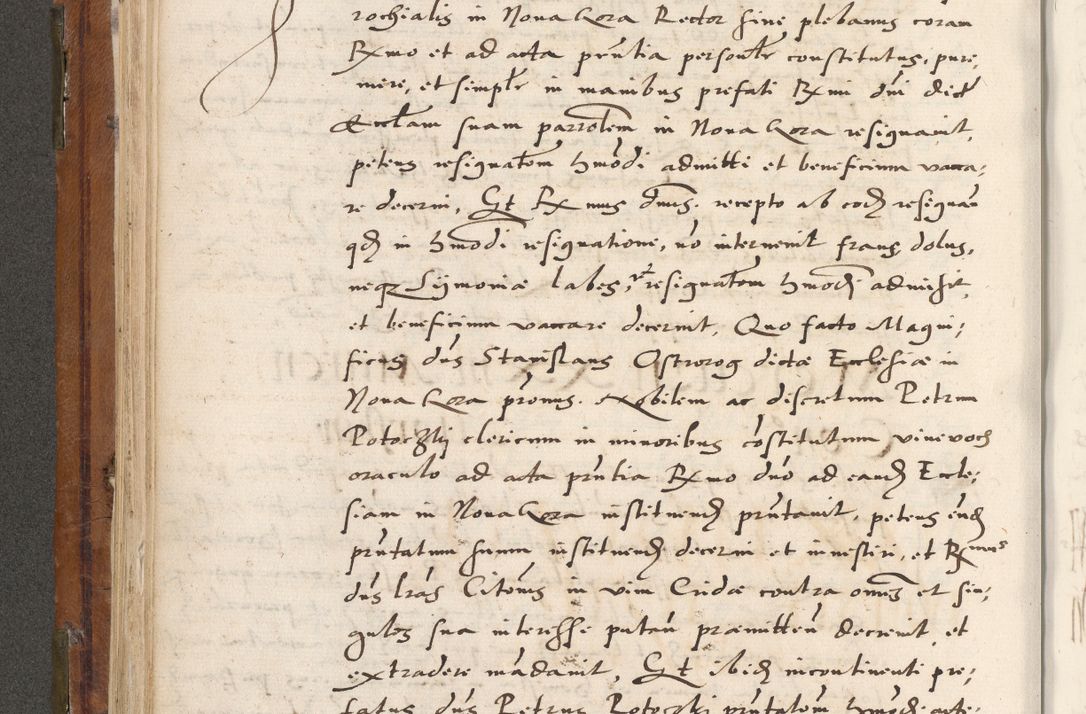 rochialis in Noua Gora Rector siue plebanus coram
Rxmo et ad acta pr̃ntia personalr̃ constitutus, pure,
mere, et simplr̃ in manibus prefati Rxmi dñi dict
Ecclam suam parrolem in Noua Gora resignauit,
petens resignatom hmodi admitti et beneficium vaca-
re decerni, Et Rxmus dnus. recepto ab eod resignan
qd in hmodi resignatione, nõ interuenit fraus, dolus,
neqз Sÿmoniæ labes, resignatom hmodi admisit,
et beneficium vaccare decernit, Quo facto Magni-
ficus dñs Stanislaus Ostrorog dictæ Ecclesiæ in
Noua Gora prõnus. Nobilem ac discretum Petrum
Potoczki clericum in minoribus cõstitutum viue vocis
oraculo ad acta pr̃ntia Rxmo dno ad eand Eccle-
siam in Noua Gora instituend prñtauit, petens eund
prñtatum suum instituend decerni et inuestiri, et Rxmus
dñs lr̃as Citõnis in vim Cridæ contra omnes et sin-
gulos sua interesse putan præmitten decreuit, et
extradere mãdauit, Et ibid incontinenti pre-
fatus dñs Petrus Potoczki prñtatom hmodi acte-